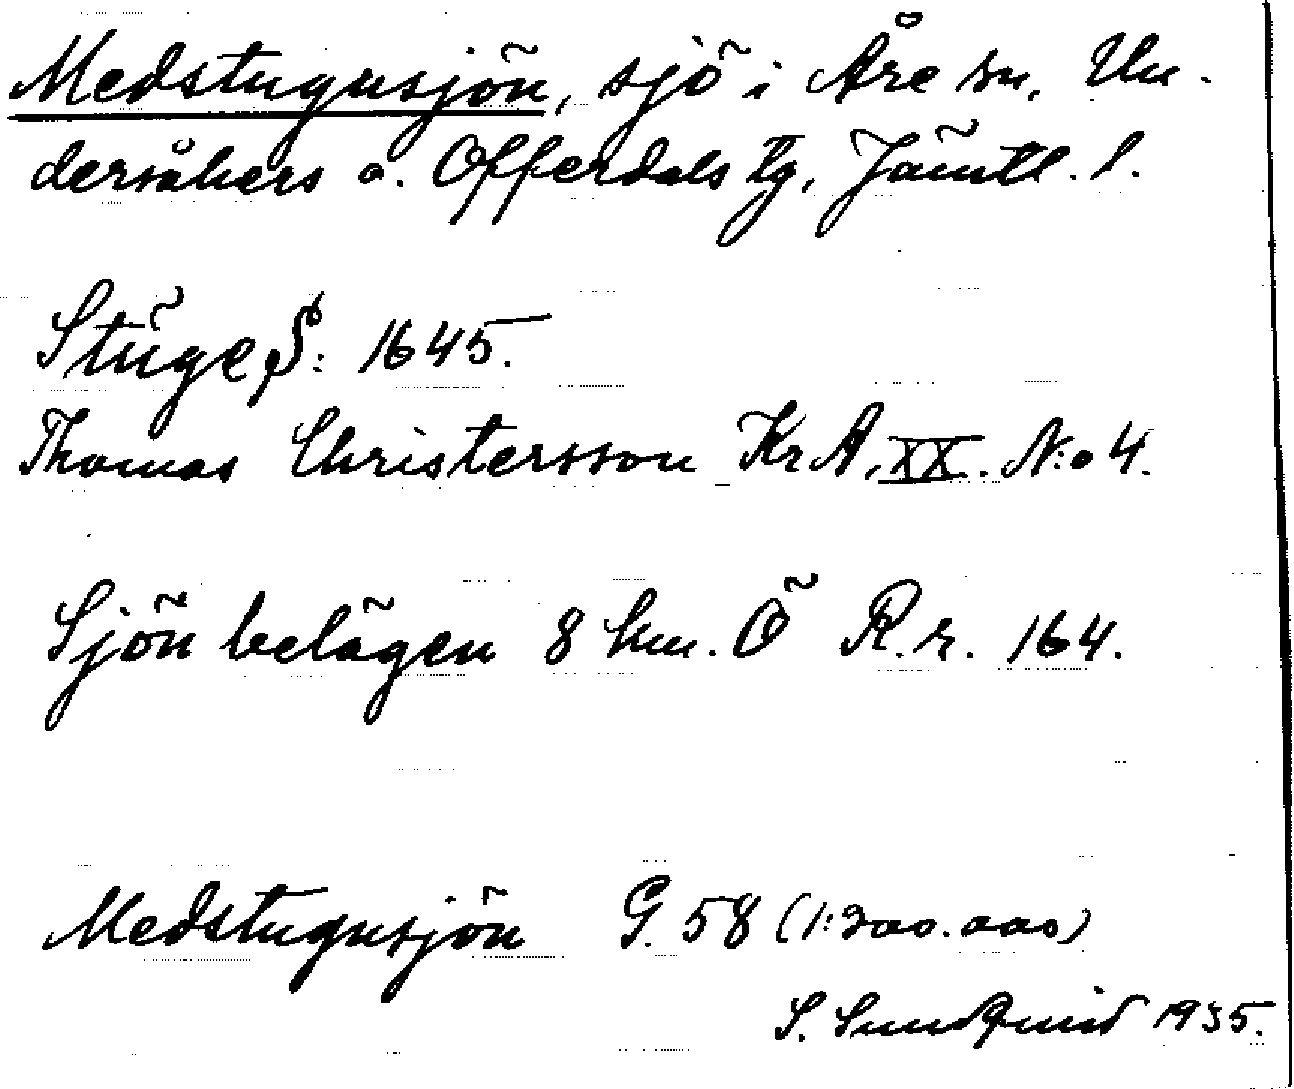 Medstugusjön, sjö i Åre sn, Un-
dersåkers o. Offerdals tg, Jämtl. l.
Stüge S: 1645.
Thomas Christersson KrA, XX. N:o 4.
Sjön belägen 8 km. Ö R.r. 164.
Medstugusjön G. 58 (1:200.000)
S. Sundquist 1935.